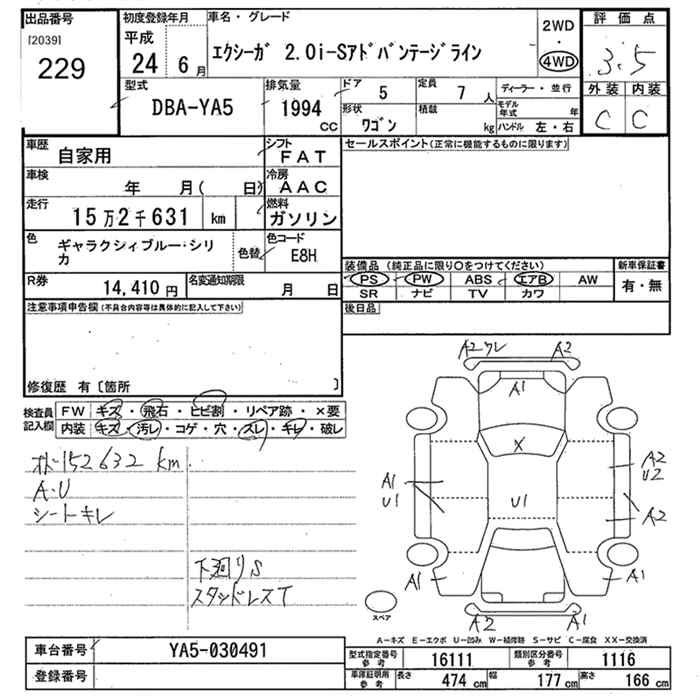 出品番号
[2039]
229
初度登録年月
平成
24 6 月
車名・グレード
エクシーガ 2.0i-Sアドバンテージライン
2WD
・
4WD
評価点
3.5
外装 内装
C C
型式
DBA-YA5
排気量
1994
CC
ドア 5
形状
ワゴン
定員 7 人
積載 kg
ディーラー・並行
モデル年式 年
ハンドル 左・右
車歴
自家用
シフト
FAT
車検
年 月( 日)
冷房
AAC
走行
15万2千631 km
燃料
ガソリン
色
ギャラクシィブルー・シリカ
色替
色コード
E8H
R券
14,410 円
名変通知期限
月 日
セールスポイント(正常に機能するものに限ります)
装備品 (純正品に限り○をつけてください)
PS PW ABS エアB AW
SR ナビ TV カワ
新車保証書
有・無
後日品
注意事項申告欄(不具合内容等は具体的に記入して下さい)
修復歴 有〔箇所 〕
検査員記入欄
FW キズ・飛石・ヒビ割・リペア跡・×要
内装 キズ・汚レ・コゲ・穴・スレ・キレ・破レ
152632 km
A.U
シートキレ
下廻りS
スタッドレスT
A2ワレ A2
A1
X
A1
U1
U1
A2
U2
A2
A1
A1
A2
A1
スペア
A-キズ E-エクボ U-凹み W-補修跡 S-サビ C-腐食 XX-交換済
車台番号
YA5-030491
登録番号
型式指定番号
参考
16111
類別区分番号
参考
1116
車庫証明用
参考
長さ 474 cm
幅 177 cm
高さ 166 cm